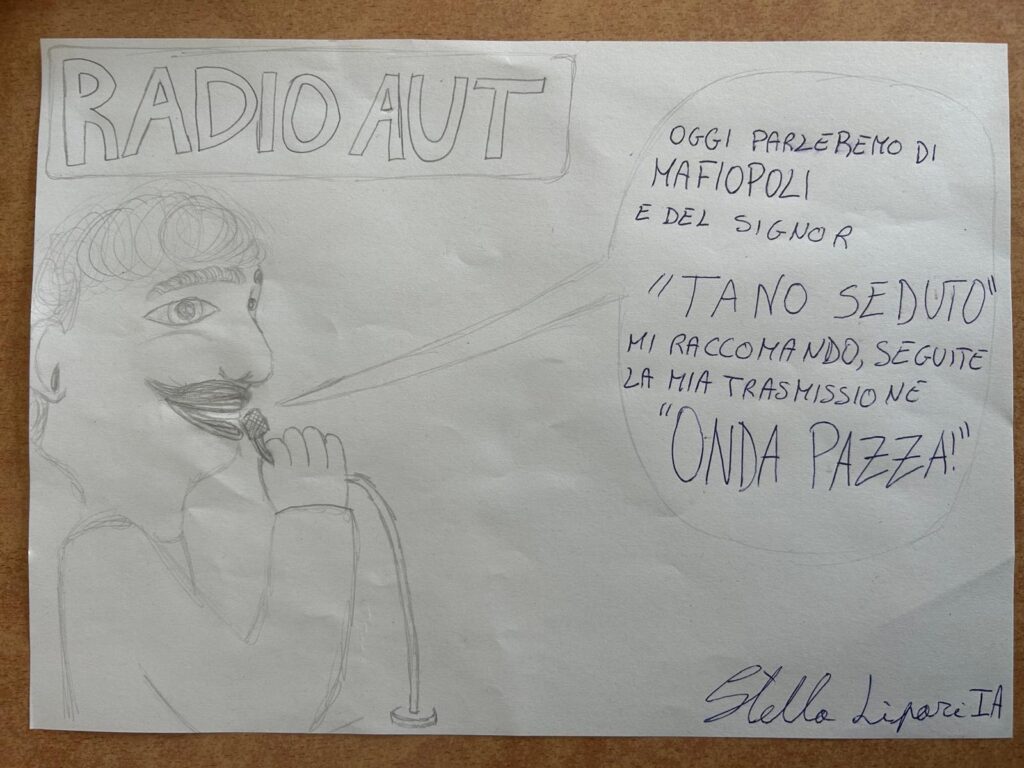 RADIO AUT
OGGI PARLEREMO DI
MAFIOPOLI
E DEL SIGNOR
"TANO SEDUTO"
MI RACCOMANDO, SEGUITE
LA MIA TRASMISSIONE
"ONDA PAZZA!"
Stella Lipari IA